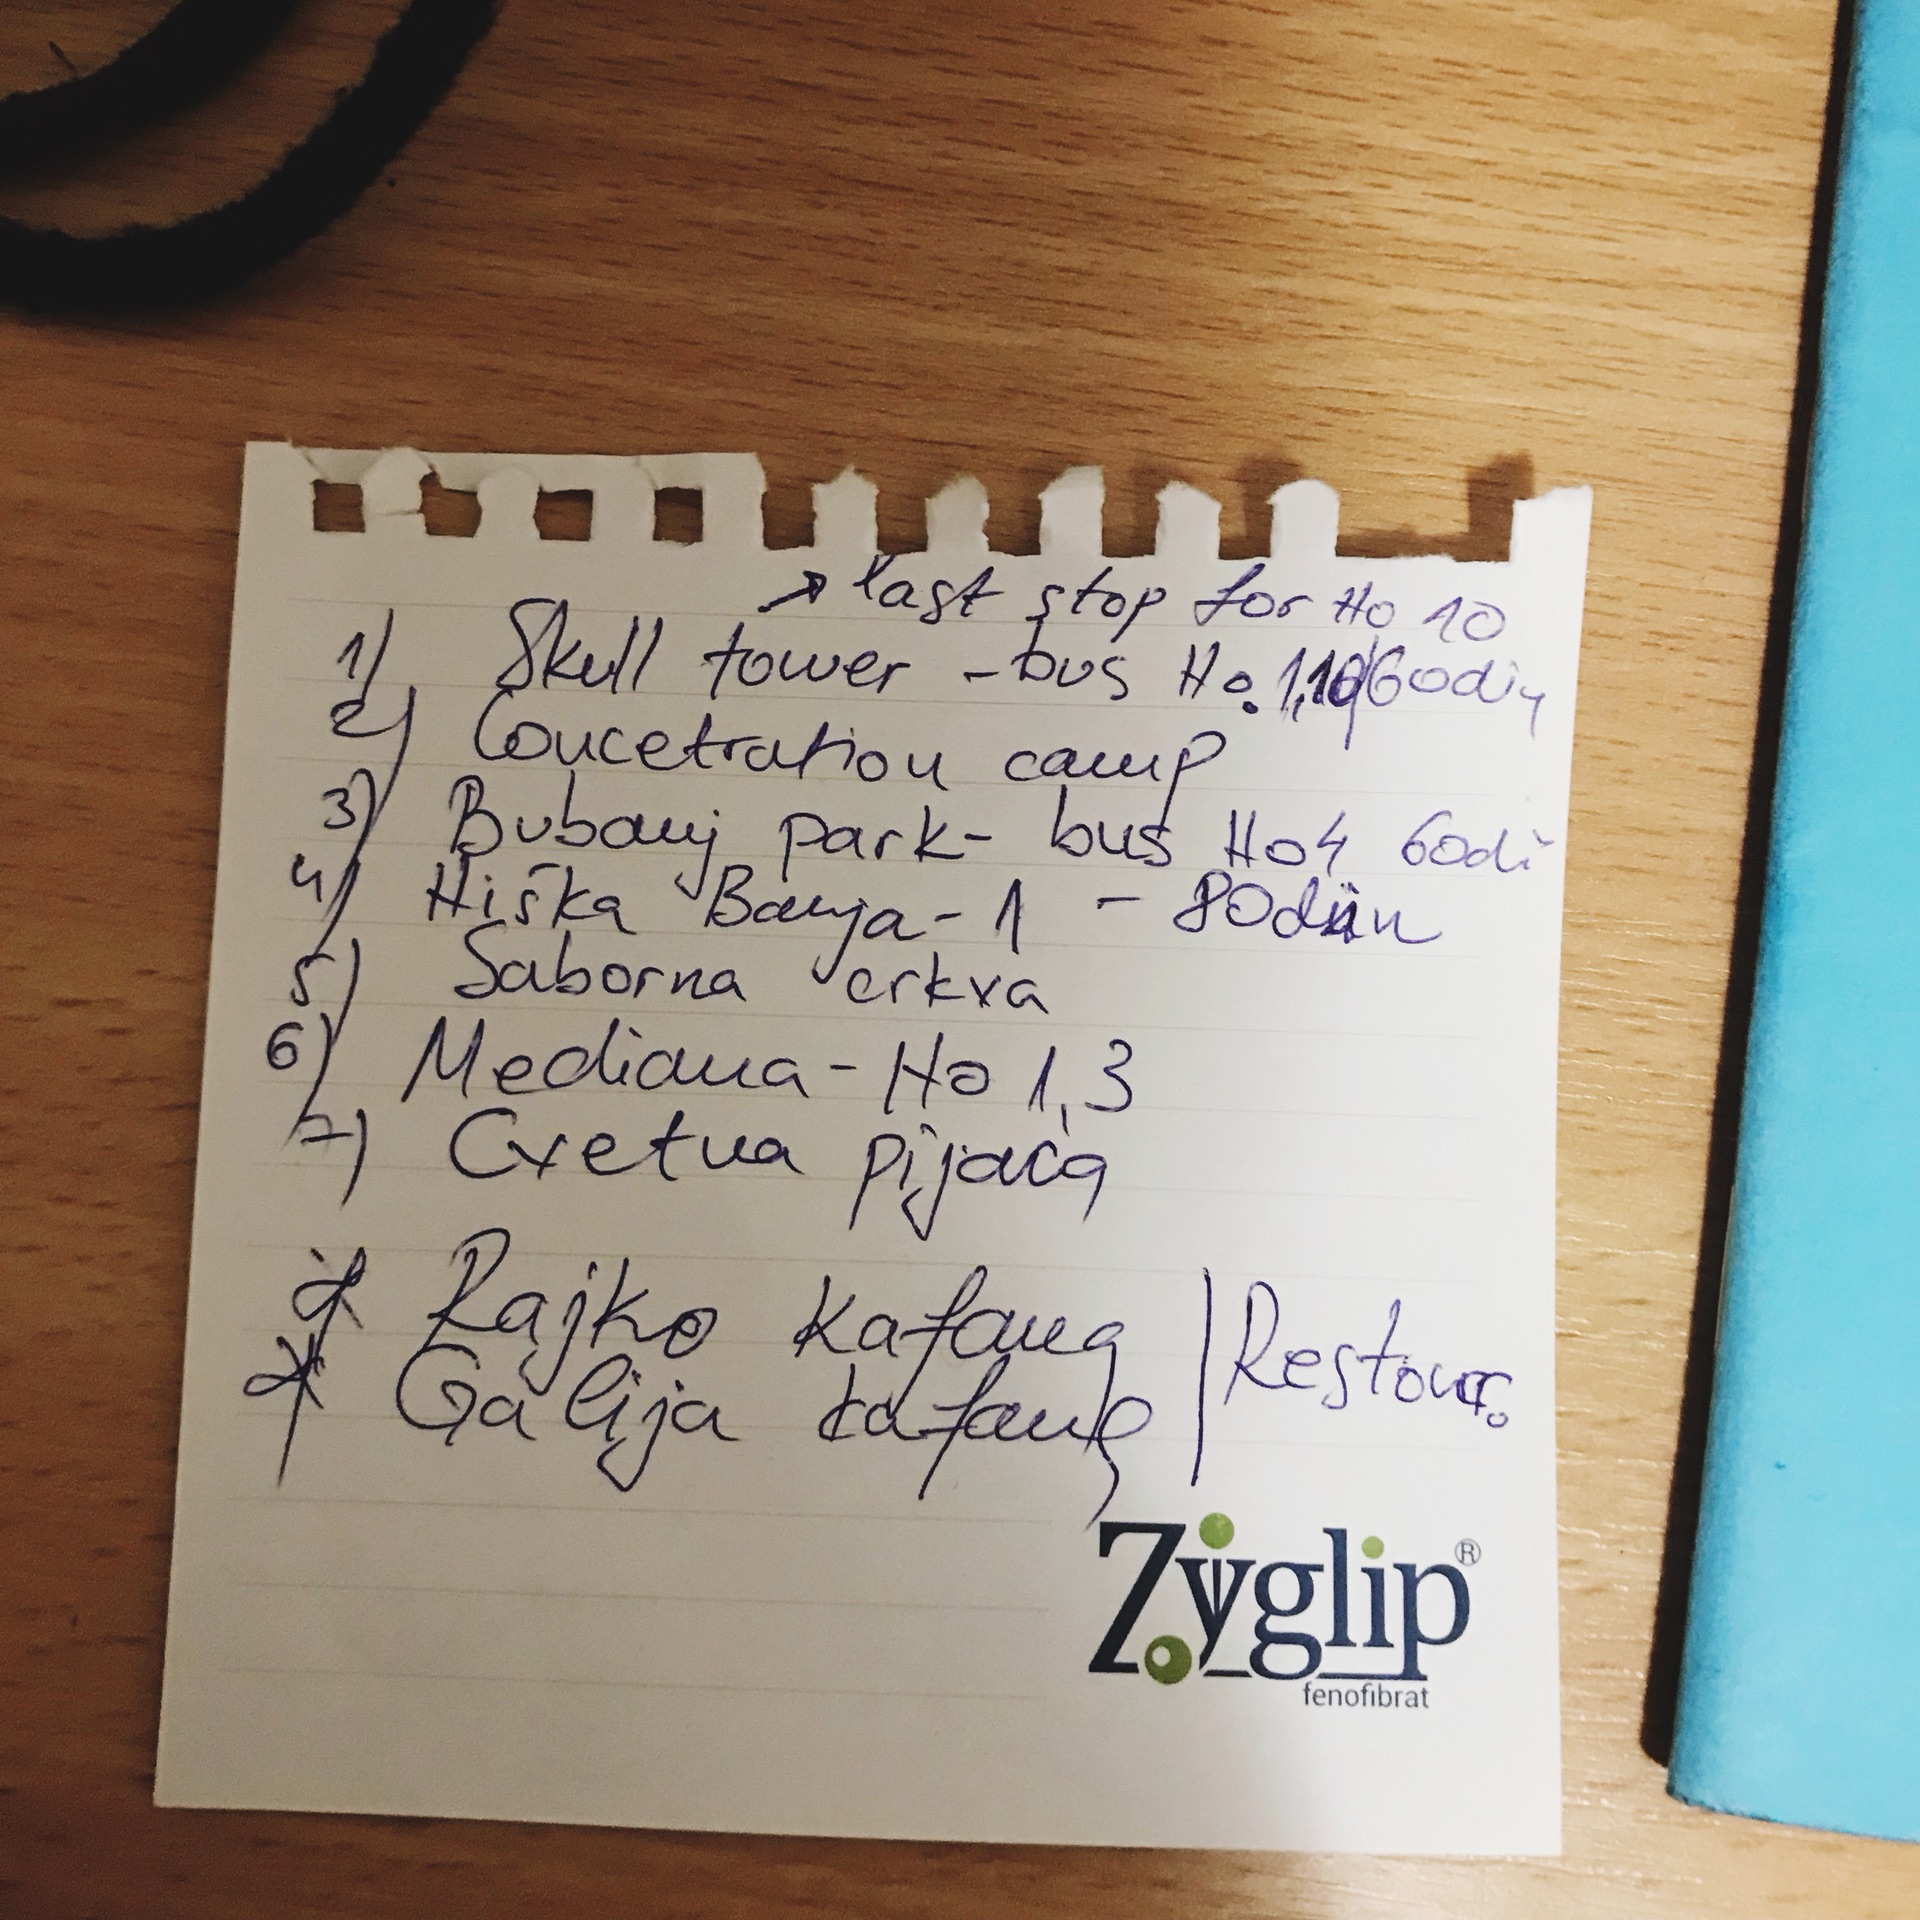 → last stop for No 10
1) Skull tower - bus No. 1,10/60din
2) Concetration camp
3) Bubanj park - bus No4 60di
4) Niška Banja - 1 - 80din
5) Saborna crkva
6) Mediana - No 1,3
7) Cvetna pijaca
* Rajko kafana | Restour.
* Galija kafana
Zyglip®
fenofibrat